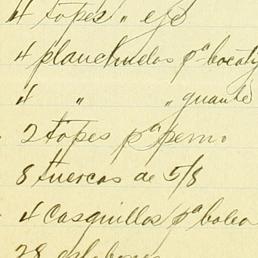 4 topes " eje
4 planchuelas pª bocaty
4 " " guante
2 topes pª perno
8 tuercas de 5/8
4 Casquillos pª bolea
28 eslabones